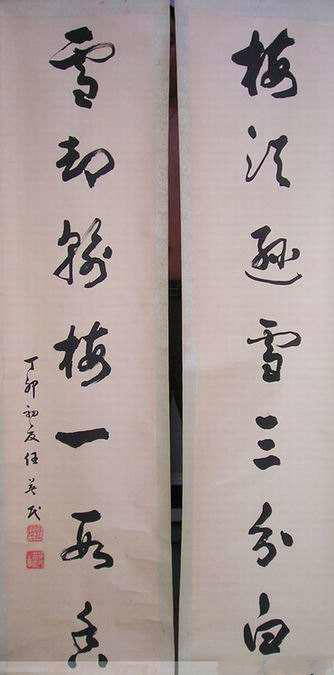 梅须逊雪三分白
雪却输梅一段香
丁卯初夏任英民